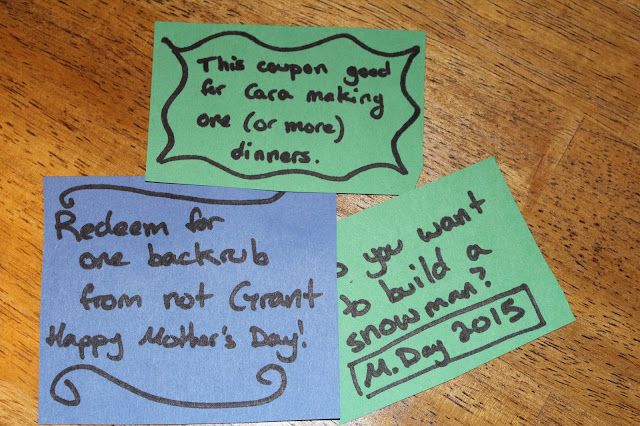 This coupon good
for Cara making
one (or more)
dinners.
Redeem for
one backrub
from not Grant
Happy Mother's Day!
you want
to build a
snowman?
M. Day 2015